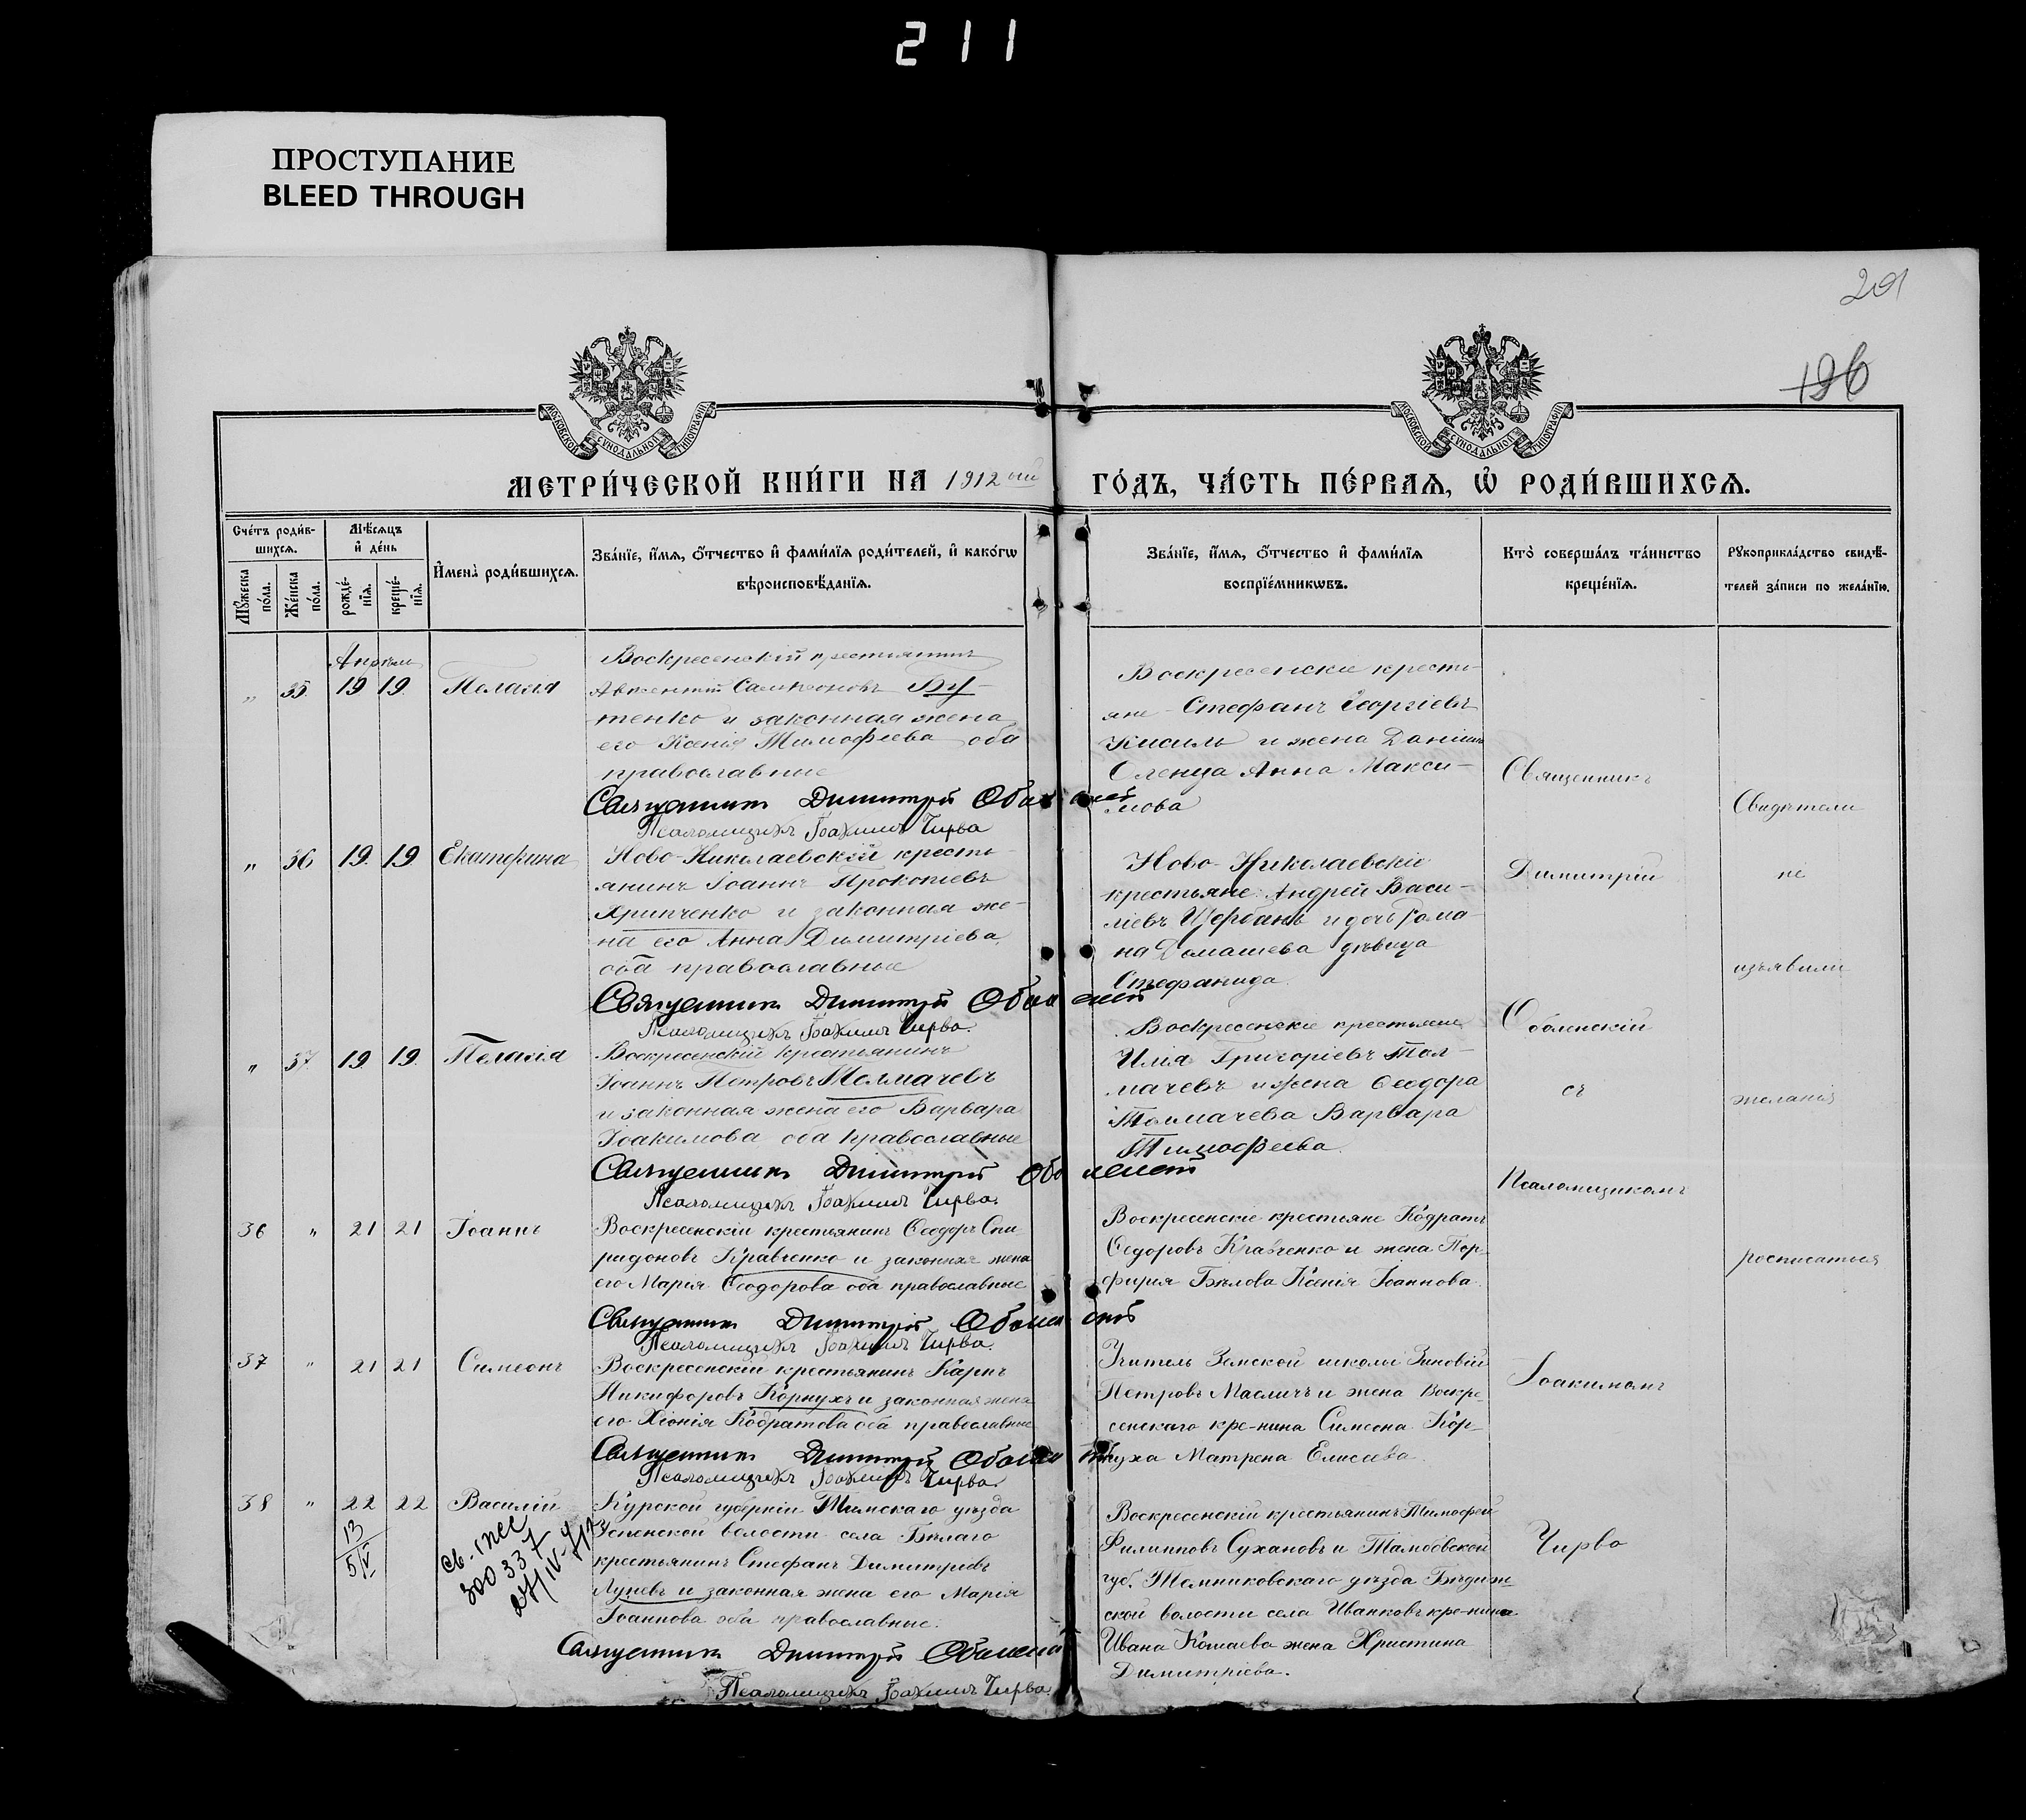 211
ПРОСТУПАНИЕ
BLEED THROUGH
201
196
МОСКОВСКОЙ СѴНОДАЛЬНОЙ ТИПОГРАФІИ
МОСКОВСКОЙ СѴНОДАЛЬНОЙ ТИПОГРАФІИ
МЕТРИ́ЧЕСКОЙ КНИ́ГИ НА 1912 ый ГО́ДЪ, ЧА́СТЬ ПЕ́РВАѦ, Ѡ҆ РОДИ́ВШИХСѦ.
Сче́тъ роди́в-
шихсѧ.
Мꙋ́жеска по́ла.
Же́нска по́ла.
Мѣ́сѧцъ и҆ де́нь
рожде́-нїѧ.
креще́-нїѧ.
И҆мена̀ роди́вшихсѧ.
Зва́нїе, и҆́мѧ, ѻ҆́тчество и҆ фами́лїѧ роди́телей, и҆ како́гѡ
вѣроисповѣ́данїѧ.
Зва́нїе, и҆́мѧ, ѻ҆́тчество и҆ фами́лїѧ
воспрїе́мникѡвъ.
Кто̀ соверша́лъ та́инство
креще́нїѧ.
Рꙋкоприкла́дство свидѣ́-
телей за́писи по жела́нїю.
Апрѣль
" 35. 19 19. Пелагія
Воскресенскій крестьянинъ
Авксентій Сампсоновъ Бу-
тенко и законная жена
его Ксенія Тимофеева оба
православные
Священникъ Димитрій Оболенскій
Псаломщикъ Іоакимъ Чирва
Воскресенскіе кресть-
яне Стефанъ Георгіевъ
Кисиль и жена Даніила
Оленца Анна Макси-
мова
" 36 19. 19 Екатерина
Ново-Николаевскій кресть-
янинъ Іоаннъ Прокопіевъ
Яринченко и законная же-
на его Анна Димитріева,
оба православные
Священникъ Димитрій Оболенскій
Псаломщикъ Іоакимъ Чирва.
Ново-Николаевскіе
крестьяне: Андрей Васи-
ліевъ Щербань и дочь Рома-
на Домашева дѣвица
Стефанида.
" 37. 19. 19. Пелагія
Воскресенскій крестьянинъ
Іоаннъ Петровъ Толмачевъ
и законная жена его Варвара
Іоакимова оба православные
Священникъ Димитрій Оболенскій
Псаломщикъ Іоакимъ Чирва.
Воскресенскіе крестьяне
Илія Григоріевъ Тол-
мачевъ и жена Ѳеодора
Толмачева Варвара
Тимофеева.
36 " 21 21 Іоаннъ
Воскресенскій крестьянинъ Ѳеодоръ Спи-
ридоновъ Кравченко и законная жена
его Марія Ѳеодорова оба православные
Священникъ Димитрій Оболенскій
Псаломщикъ Іоакимъ Чирва.
Воскресенскіе крестьяне Кодратъ
Ѳедоровъ Кравченко и жена Пор-
фирія Бѣлова Ксенія Іоаннова.
37 " 21 21 Симеонъ
Воскресенскій крестьянинъ Карпъ
Никифоровъ Корнухъ и законная жена
его Хіонія Кодратова оба православные
Священникъ Димитрій Оболенскій
Псаломщикъ Іоакимъ Чирва.
Учитель Земской школы Зиновій
Петровъ Масличъ и жена Воскре-
сенскаго кре-нина Симеона Кор-
нуха Матрена Елисеева.
38 " 22 22 Василій
13
5/V
св.
300337
27/IV
Курской губерніи Тимскаго уѣзда
Успенской волости села Бѣлаго
крестьянинъ Стефанъ Димитріевъ
Лупевъ и законная жена его Марія
Іоаннова оба православные.
Священникъ Димитрій Оболенскій
Псаломщикъ Іоакимъ Чирва.
Воскресенскій крестьянинъ Тимофей
Филипповъ Сухановъ и Тамбовской
губ. Темниковскаго уѣзда
ской волости села Иванковъ кре-нина
Ивана жена Христина
Димитріева.
Священникъ
Димитрій
Оболенскій
съ
Псаломщикомъ
Іоакимомъ
Чирва
Свидѣтели
не
изъявили
желанія
росписаться